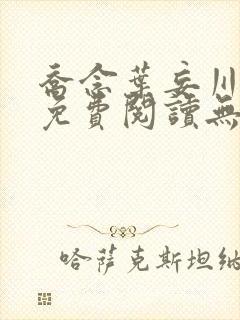 喬念葉妄川
免費閱讀無
哈薩克斯坦納